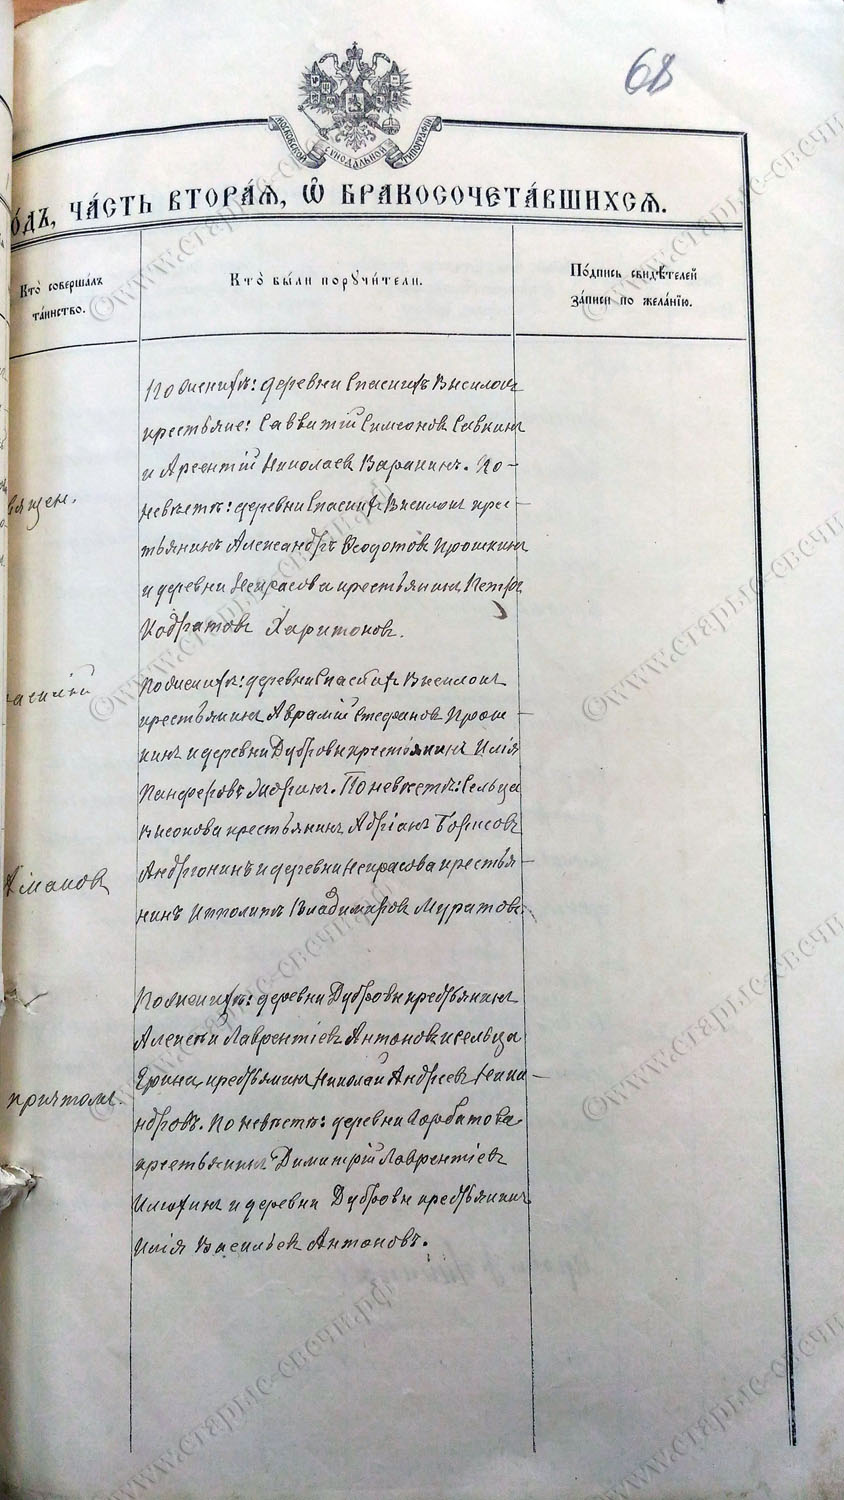 68
МОСКОВСКОЙ СѴНОДАЛЬНОЙ ТИПОГРАФІИ
О́ДЪ, ЧА́СТЬ ВТОРА́Ѧ, Ѽ БРАКОСОЧЕТА́ВШИХСѦ.
Кто̀ соверша́лъ
та́инство.
Кто̀ бы́ли порꙋчи́тели.
По́дпись свидѣ́телей
за́писи по жела́нїю.
По женихѣ: деревни Спасихъ
крестьяне: Савватій Симеоновъ Савкинъ
и Арсентій Николаевъ Варакинъ. По
невѣстѣ: деревни крес-
тьянинъ Александръ Ѳеодотовъ Прошкинъ
и деревни Некрасова крестьянинъ Петръ
Кодратовъ Харитоновъ.
По женихѣ: деревни
крестьянинъ Аврамій Стефановъ Прош-
кинъ и деревни Дубровы крестьянинъ Илія
Панферовъ По невѣстѣ: Сельца
крестьянинъ Адріанъ Борисовъ
Андронинъ и деревни Некрасова крестья-
нинъ Ипполитъ Владимировъ Муратовъ.
По женихѣ: деревни Дубровы крестьянинъ
Алексѣй Лаврентіевъ Антоновъ и сельца
Ерина крестьянинъ Николай Андреевъ
По невѣстѣ: деревни Горбатова
крестьянинъ Димитрій Лаврентіевъ
и деревни Дубровы крестьянинъ
Илія Васильевъ Антоновъ.
вящен.
асилій
причтомъ.
©www.старые-свечи.рф